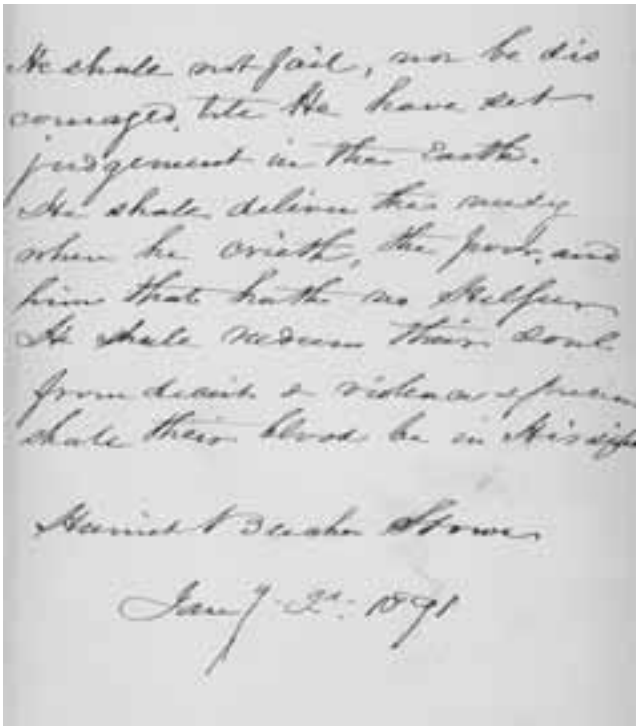 He shall not fail, nor be dis
couraged, till He have set
judgement in the Earth.
He shall deliver the needy
when he crieth, the poor, and
him that hath no helper
He shall redeem their soul
from deceit & violence & precious
shall their blood be in His sight
Harriet Beecher Stowe
Jany 2d 1891